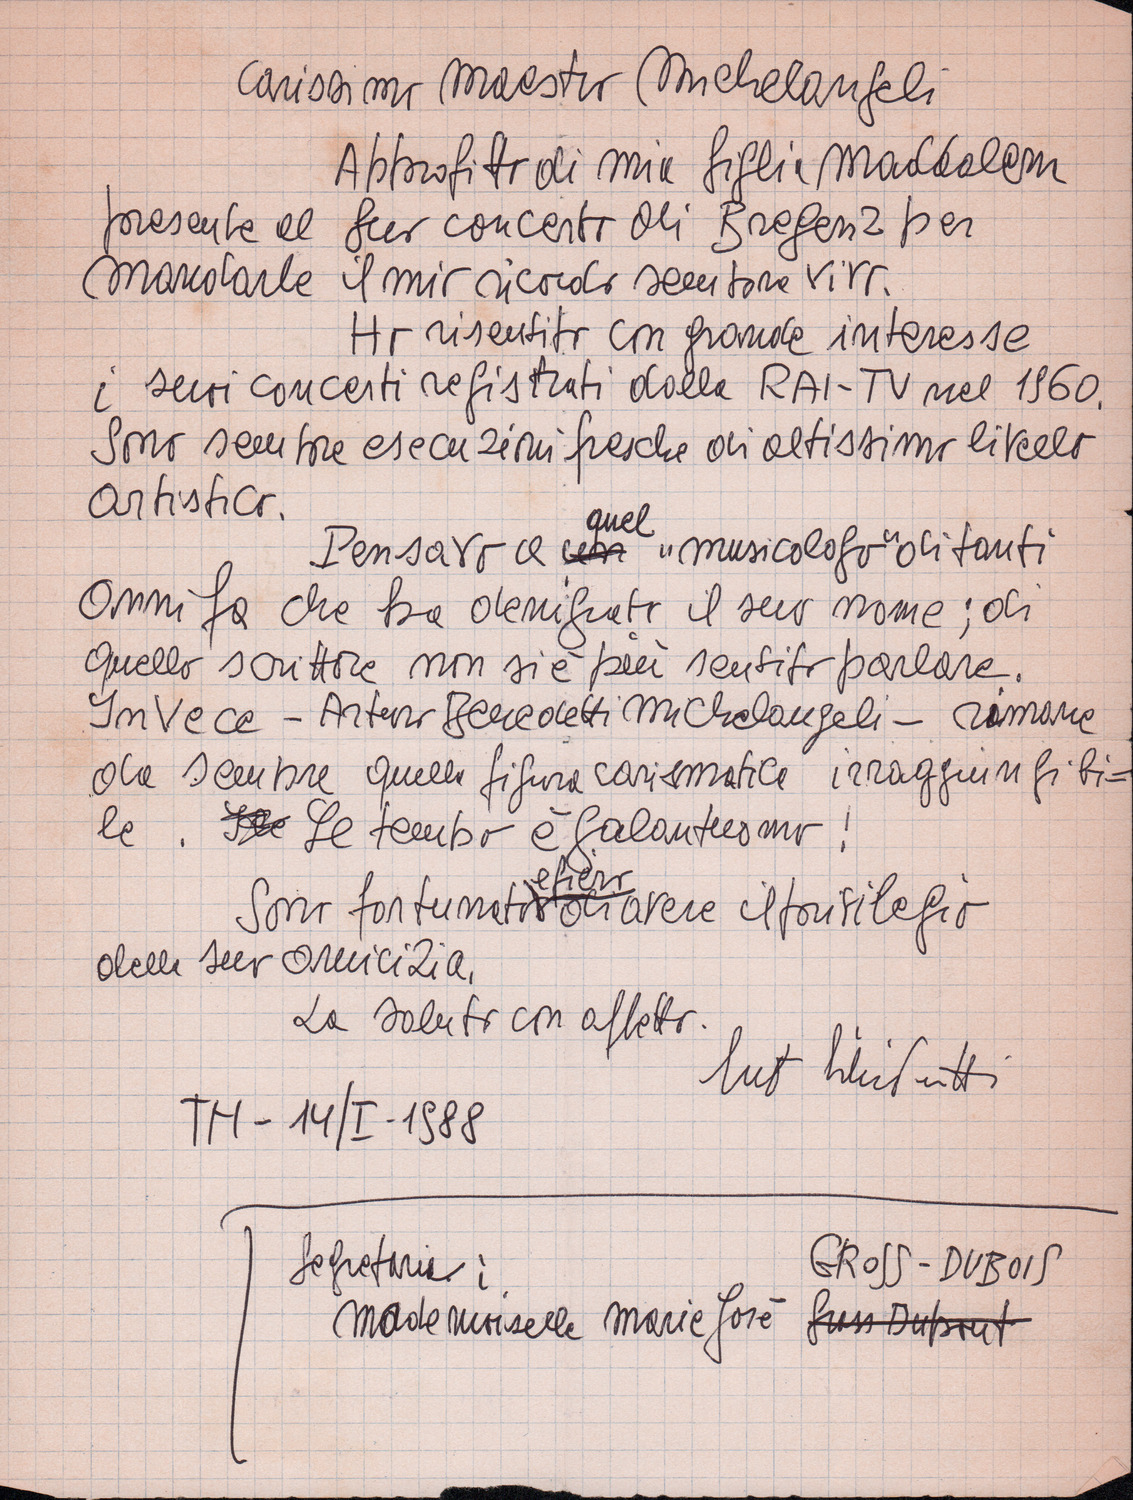 Carissimo Maestro Michelangeli
Approfitto di mia figlia Maddalena
presente al suo concerto di Bregenz per
mandarle il mio ricordo sempre vivo.
Ho risentito con grande interesse
i suoi concerti registrati dalla RAI-TV nel 1960.
Sono sempre esecuzioni fresche di altissimo livello
artistico.
Pensavo a un quel "musicologo" di tanti
anni fa che ha denigrato il suo nome; di
quello scrittore non si è più sentito parlare.
Invece - Arturo Benedetti Michelangeli - rimane
da sempre quella figura carismatica irraggiungibi=
le. Il tempo è galantuomo!
Sono fortunato e fiero di avere il privilegio
della sua amicizia.
La saluto con affetto.
TH - 14/I - 1988
Segretaria:
GROSS-DUBOIS
Mademoiselle Marie José Gross Dupont